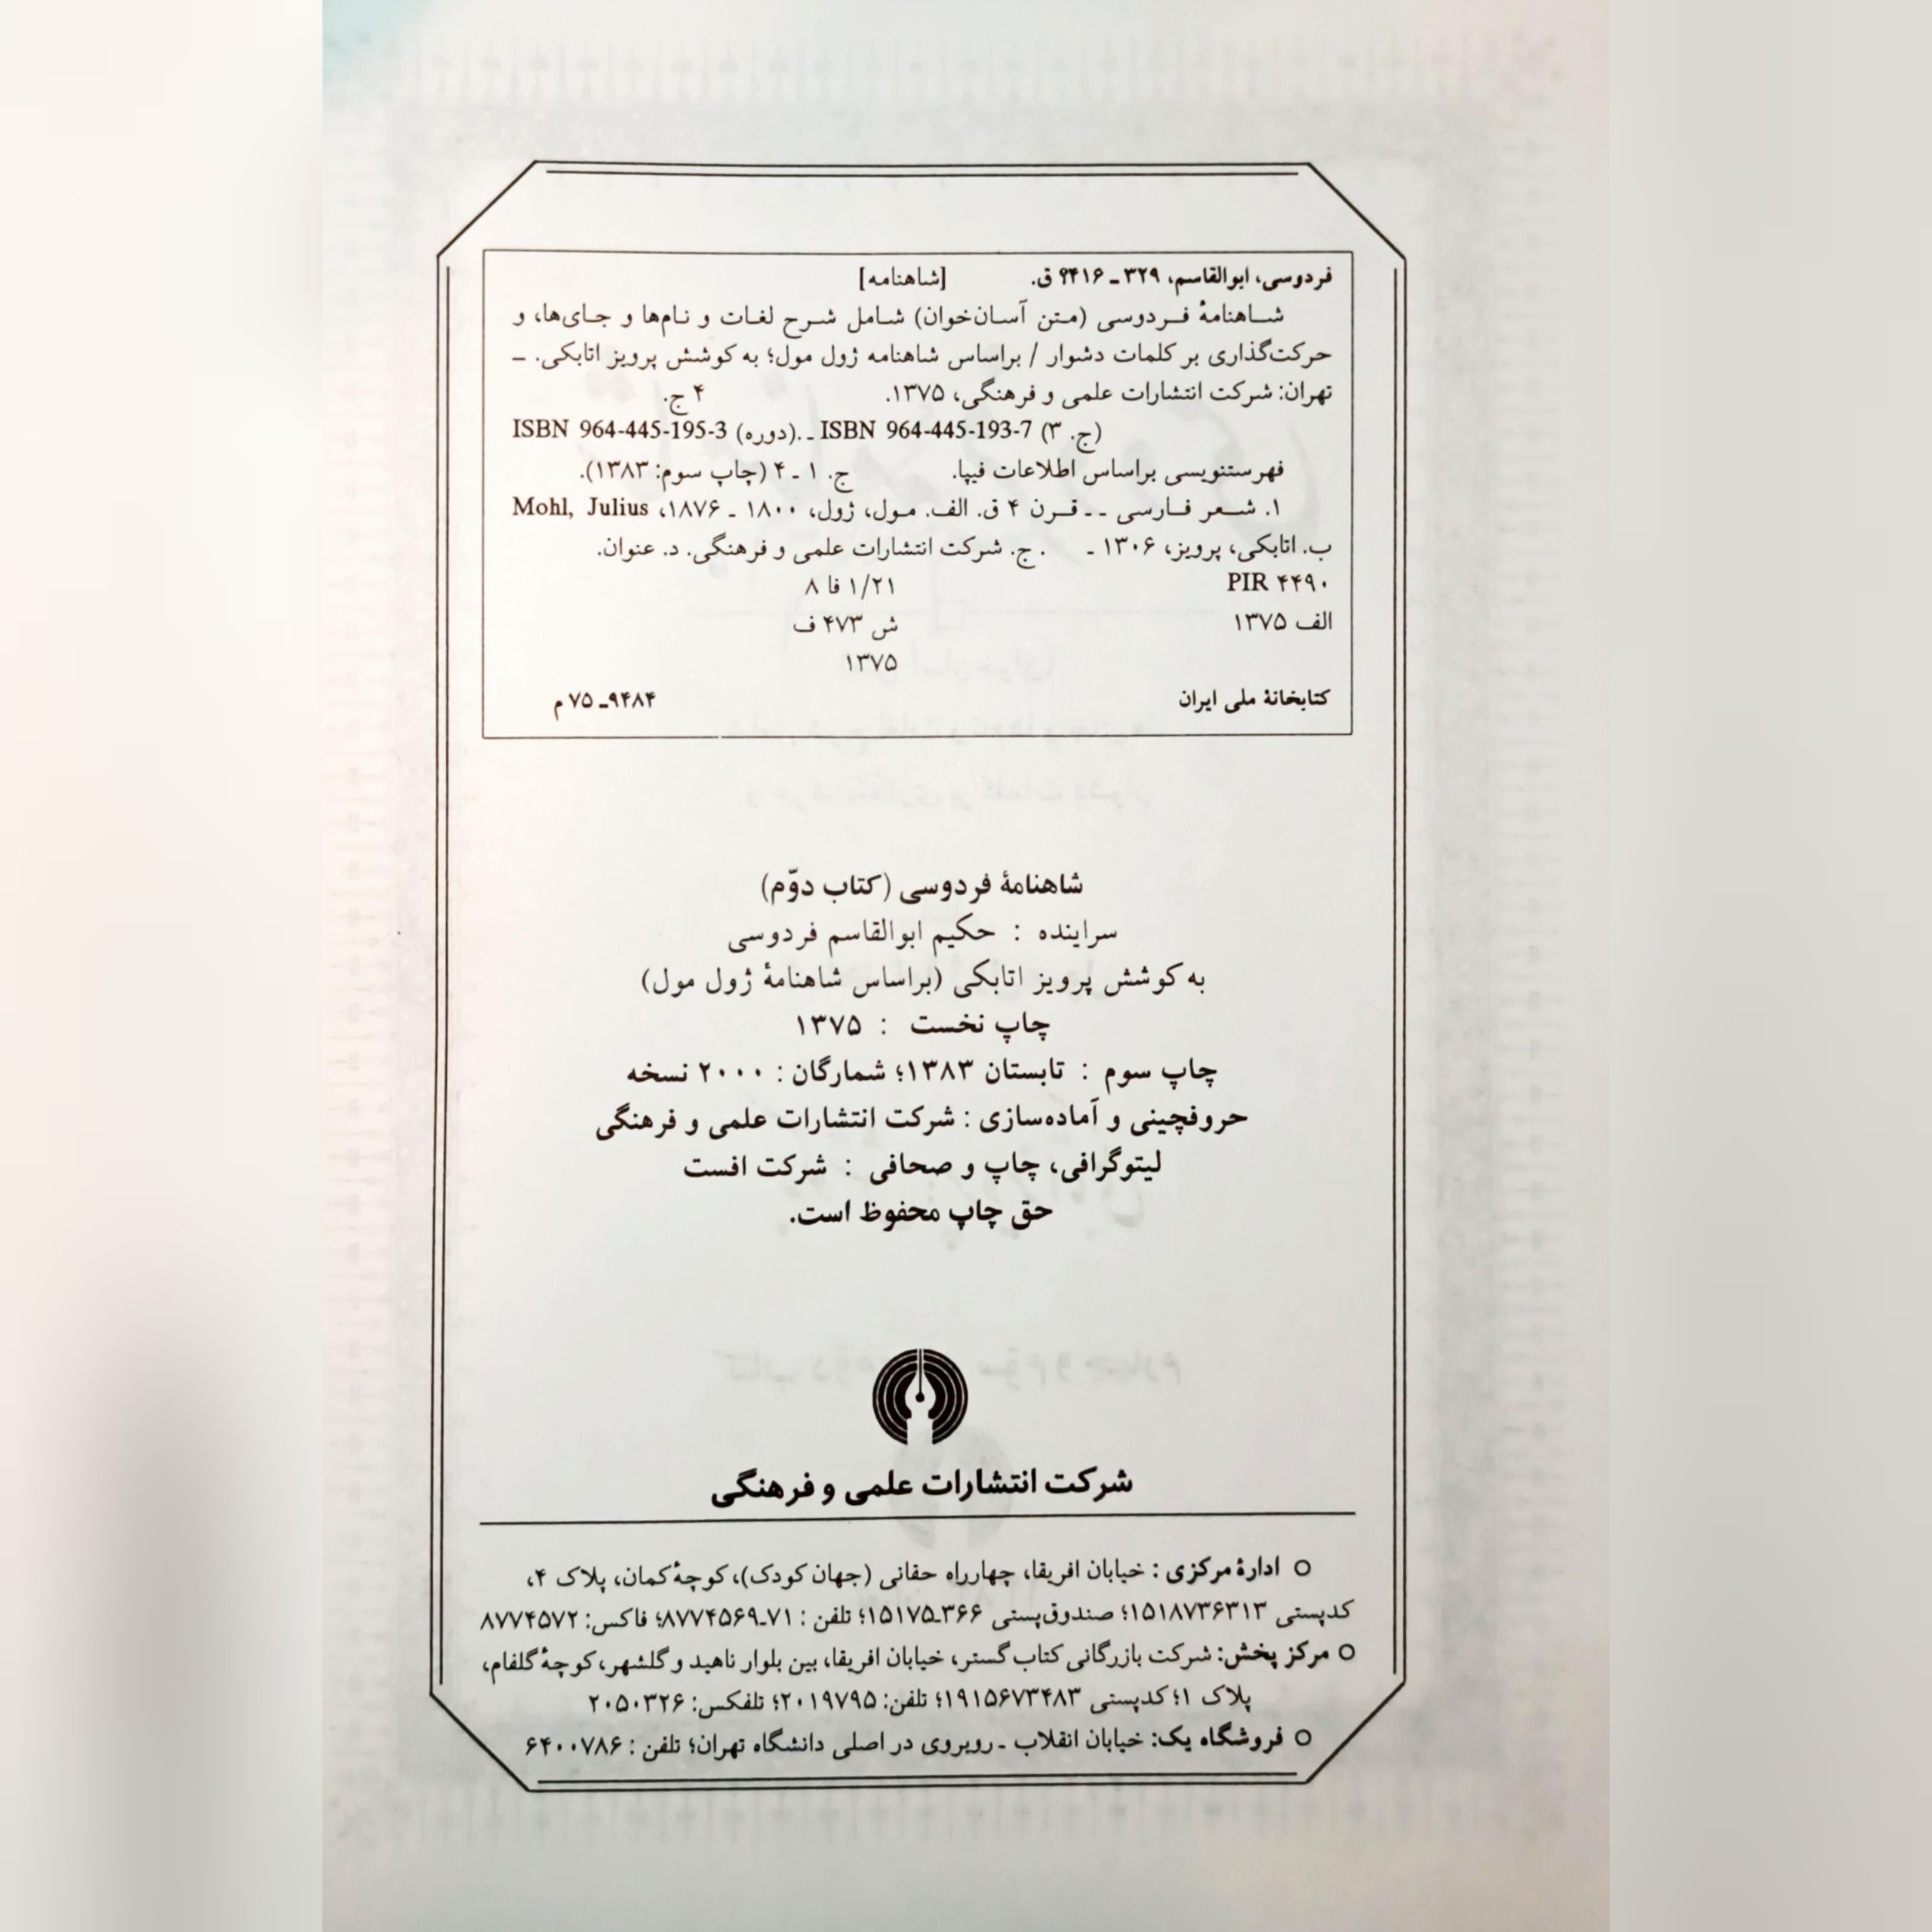 فردوسی، ابوالقاسم، ۳۲۹ ـ ۴۱۶؟ ق. [شاهنامه]
شاهنامهٔ فردوسی (متن آسان‌خوان) شامل شرح لغات و نام‌ها و جای‌ها، و
حرکت‌گذاری بر کلمات دشوار / براساس شاهنامه ژول مول؛ به کوشش پرویز اتابکی. ـ
تهران: شرکت انتشارات علمی و فرهنگی، ۱۳۷۵. ۴ ج.
ISBN 964-445-195-3 (دوره). ـ ISBN 964-445-193-7 (ج. ۳)
فهرستنویسی براساس اطلاعات فیپا. ج. ۱ ـ ۴ (چاپ سوم: ۱۳۸۳).
۱. شعر فارسی ـ ـ قرن ۴ ق. الف. مول، ژول، ۱۸۰۰ ـ ۱۸۷۶، Mohl, Julius
ب. اتابکی، پرویز، ۱۳۰۶ ـ . ج. شرکت انتشارات علمی و فرهنگی. د. عنوان.
PIR ۴۴۹۰ ۱/۲۱ فا ۸
الف ۱۳۷۵ ش ۴۷۳ ف
۱۳۷۵
کتابخانهٔ ملی ایران ۹۴۸۴ـ ۷۵ م
شاهنامهٔ فردوسی (کتاب دوّم)
سراینده : حکیم ابوالقاسم فردوسی
به کوشش پرویز اتابکی (براساس شاهنامهٔ ژول مول)
چاپ نخست : ۱۳۷۵
چاپ سوم : تابستان ۱۳۸۳؛ شمارگان : ۲۰۰۰ نسخه
حروفچینی و آماده‌سازی : شرکت انتشارات علمی و فرهنگی
لیتوگرافی، چاپ و صحافی : شرکت افست
حق چاپ محفوظ است.
شرکت انتشارات علمی و فرهنگی
○ ادارهٔ مرکزی : خیابان افریقا، چهارراه حقانی (جهان کودک)، کوچهٔ کمان، پلاک ۴،
کدپستی ۱۵۱۸۷۳۶۳۱۳؛ صندوق‌پستی ۳۶۶ـ۱۵۱۷۵؛ تلفن : ۷۱ـ۸۷۷۴۵۶۹؛ فاکس: ۸۷۷۴۵۷۲
○ مرکز پخش: شرکت بازرگانی کتاب گستر، خیابان افریقا، بین بلوار ناهید و گلشهر، کوچهٔ گلفام،
پلاک ۱؛ کدپستی ۱۹۱۵۶۷۳۴۸۳؛ تلفن: ۲۰۱۹۷۹۵؛ تلفکس: ۲۰۵۰۳۲۶
○ فروشگاه یک: خیابان انقلاب ـ روبروی در اصلی دانشگاه تهران؛ تلفن : ۶۴۰۰۷۸۶